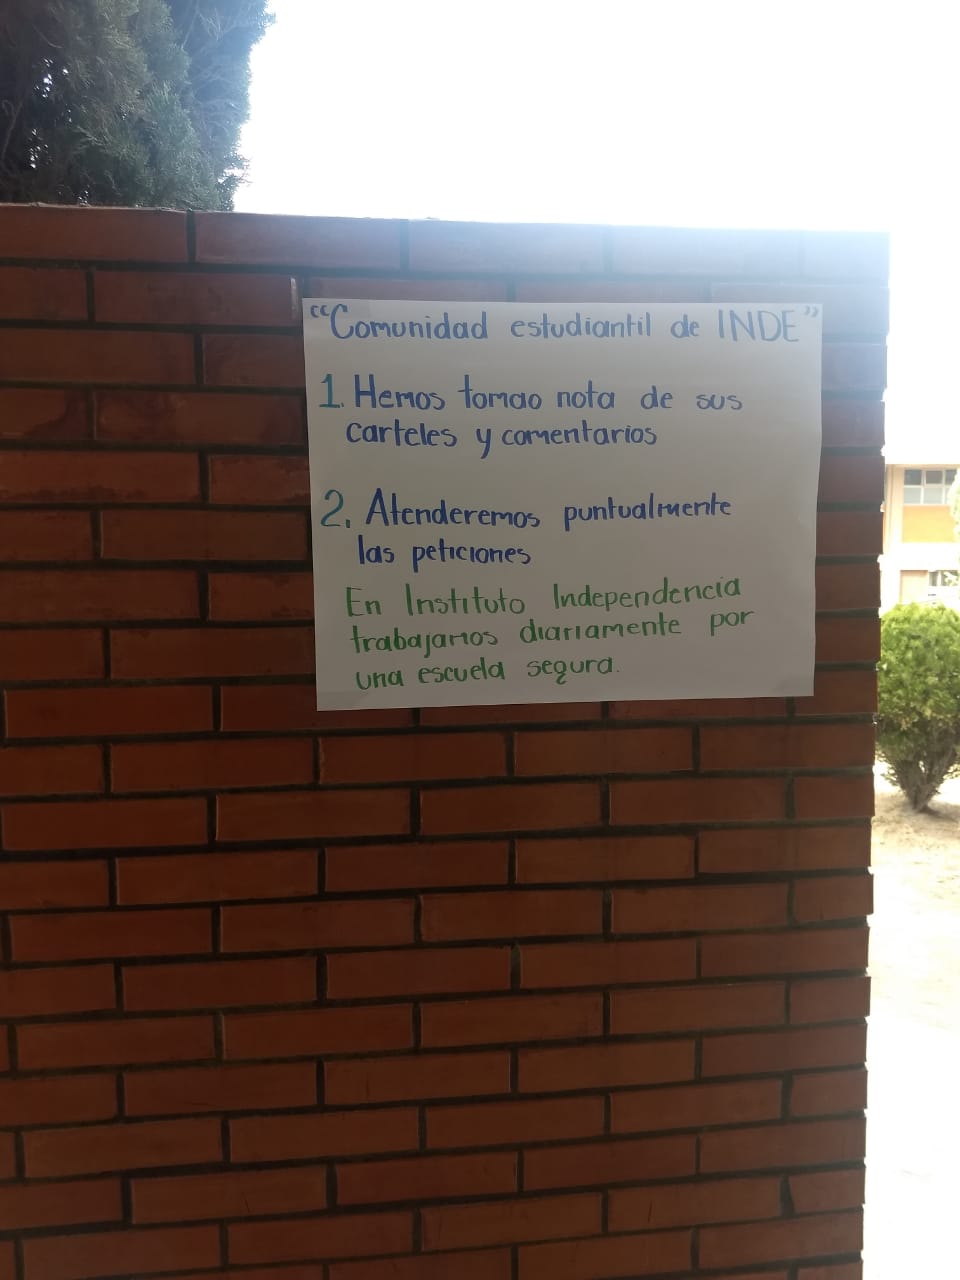 “Comunidad estudiantil de INDE”
1. Hemos tomao nota de sus
carteles y comentarios
2. Atenderemos puntualmente
las peticiones
En Instituto Independencia
trabajamos diariamente por
una escuela segura.